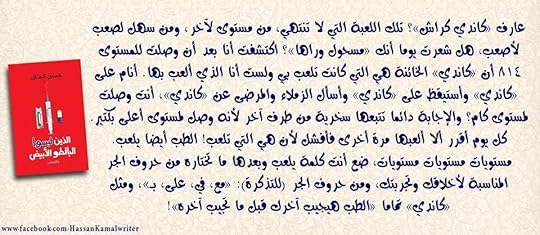 عارف «كاندي كراش»؟ تلك اللعبة التي لا تنتهي، من مستوى لآخر، ومن سهل لصعب
لأصعب، هل شعرت يوما أنك «مسحول وراها»؟ اكتشفت أنا بعد أن وصلت للمستوى
٨١٤ أن «كاندي» الخائنة هي التي كانت تلعب بي ولست أنا الذي ألعب بها. أنام على
«كاندي» وأستيقظ على «كاندي» وأسأل الزملاء والمرضى عن «كاندي»، أنت وصلت
لمستوى كام؟ والإجابة دائما تتبعها سخرية من طرف آخر لأنه وصل لمستوى أعلى بكتير.
كل يوم أقرر ألا ألعبها مرة أخرى فأفشل لأن هي التي تلعب! الطب أيضا يلعب.
مستويات مستويات مستويات، ضع أنت كلمة يلعب وبعدها ما تختاره من حروف الجر
المناسبة لأخلاقك وتجربتك، ومن حروف الجر (للتذكرة): «مع، في، على، بـ»، ومثل
«كاندي» تماما «الطب هيجيب آخرك قبل ما تجيب آخره»!
حسن كمال
الذين لبسوا
البالطو الأبيض
www.facebook.com/HassanKamalwriter